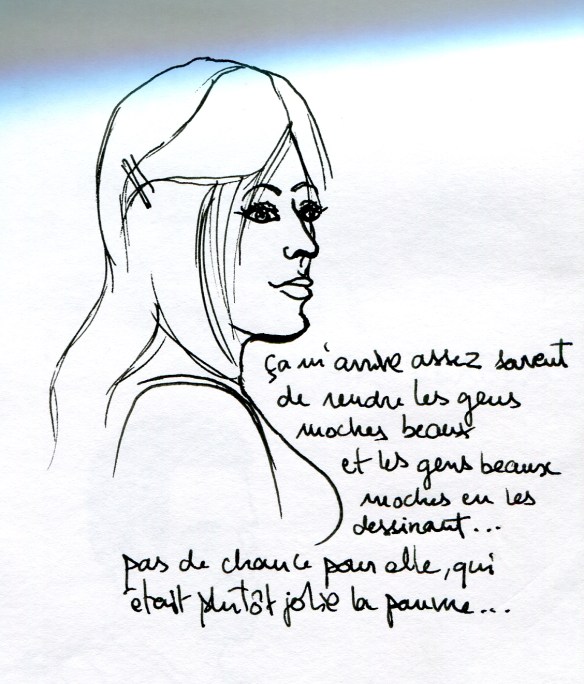 ça m'arrive assez souvent
de rendre les gens
moches beaux
et les gens beaux
moches en les
dessinant...
pas de chance pour elle, qui
était plutôt jolie la pauvre...